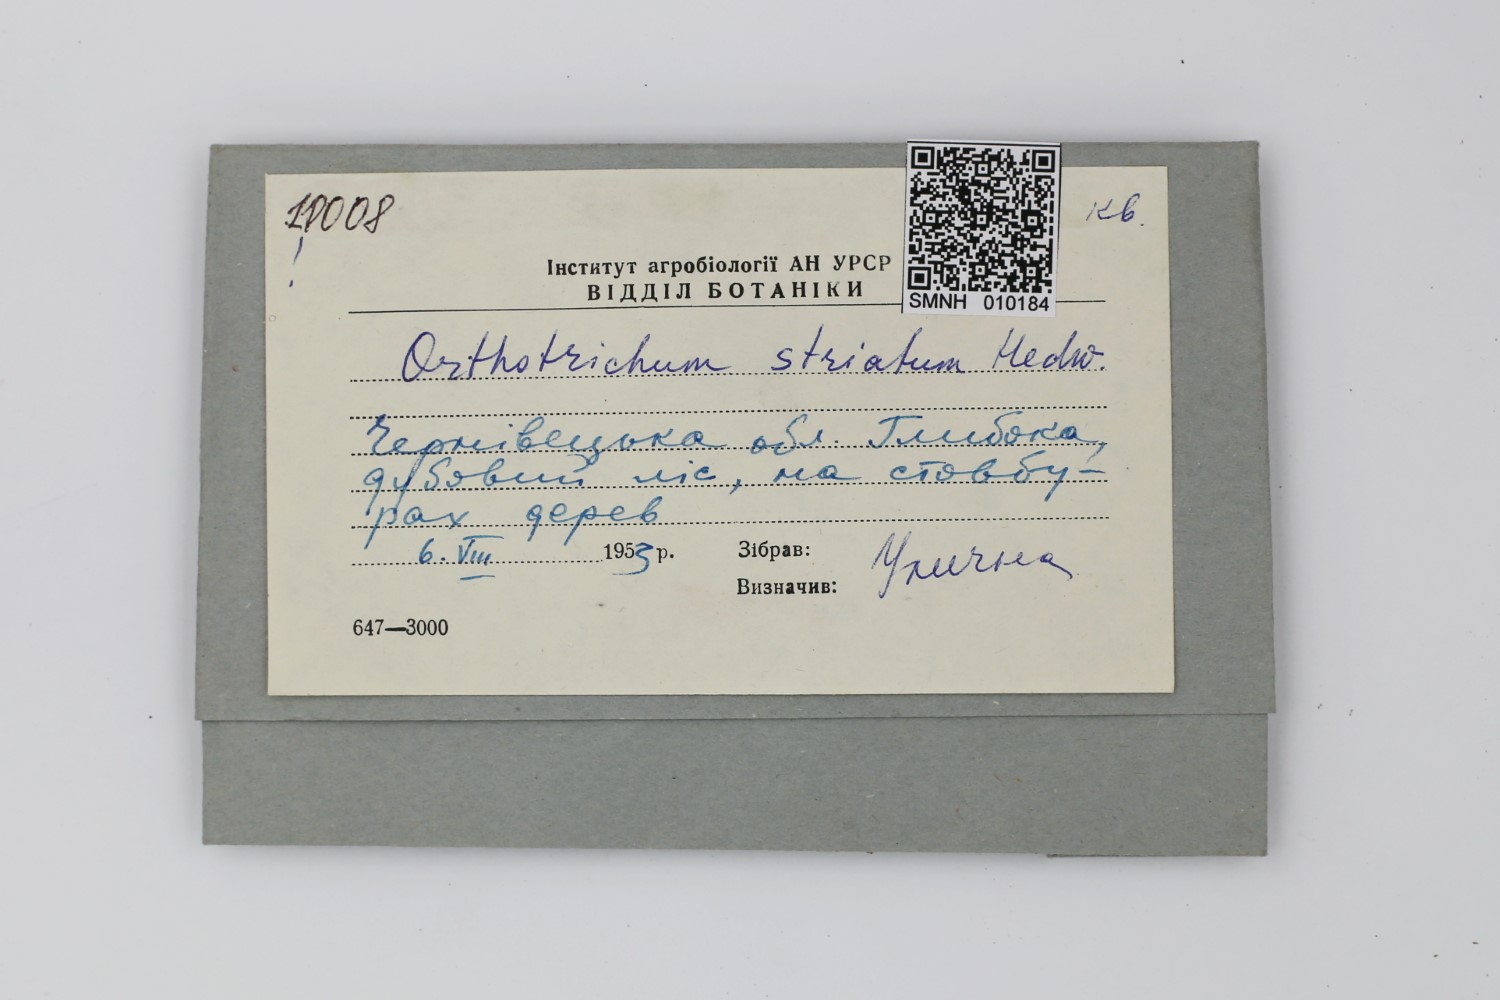 кв.
Інститут агробіології АН УРСР
ВІДДІЛ БОТАНІКИ
SMNH 010184
Orthotrichum striatum Hedw.
Чернівецька обл. Глибока,
дубовий ліс, на стовбу-
рах дерев
6. VIII 1953 р. Зібрав: Улична
Визначив:
647—3000